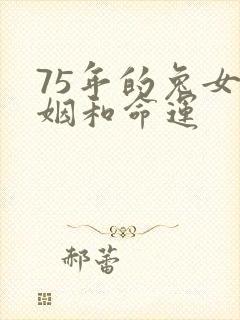 75年的兔女
姻和命运
郝蕾